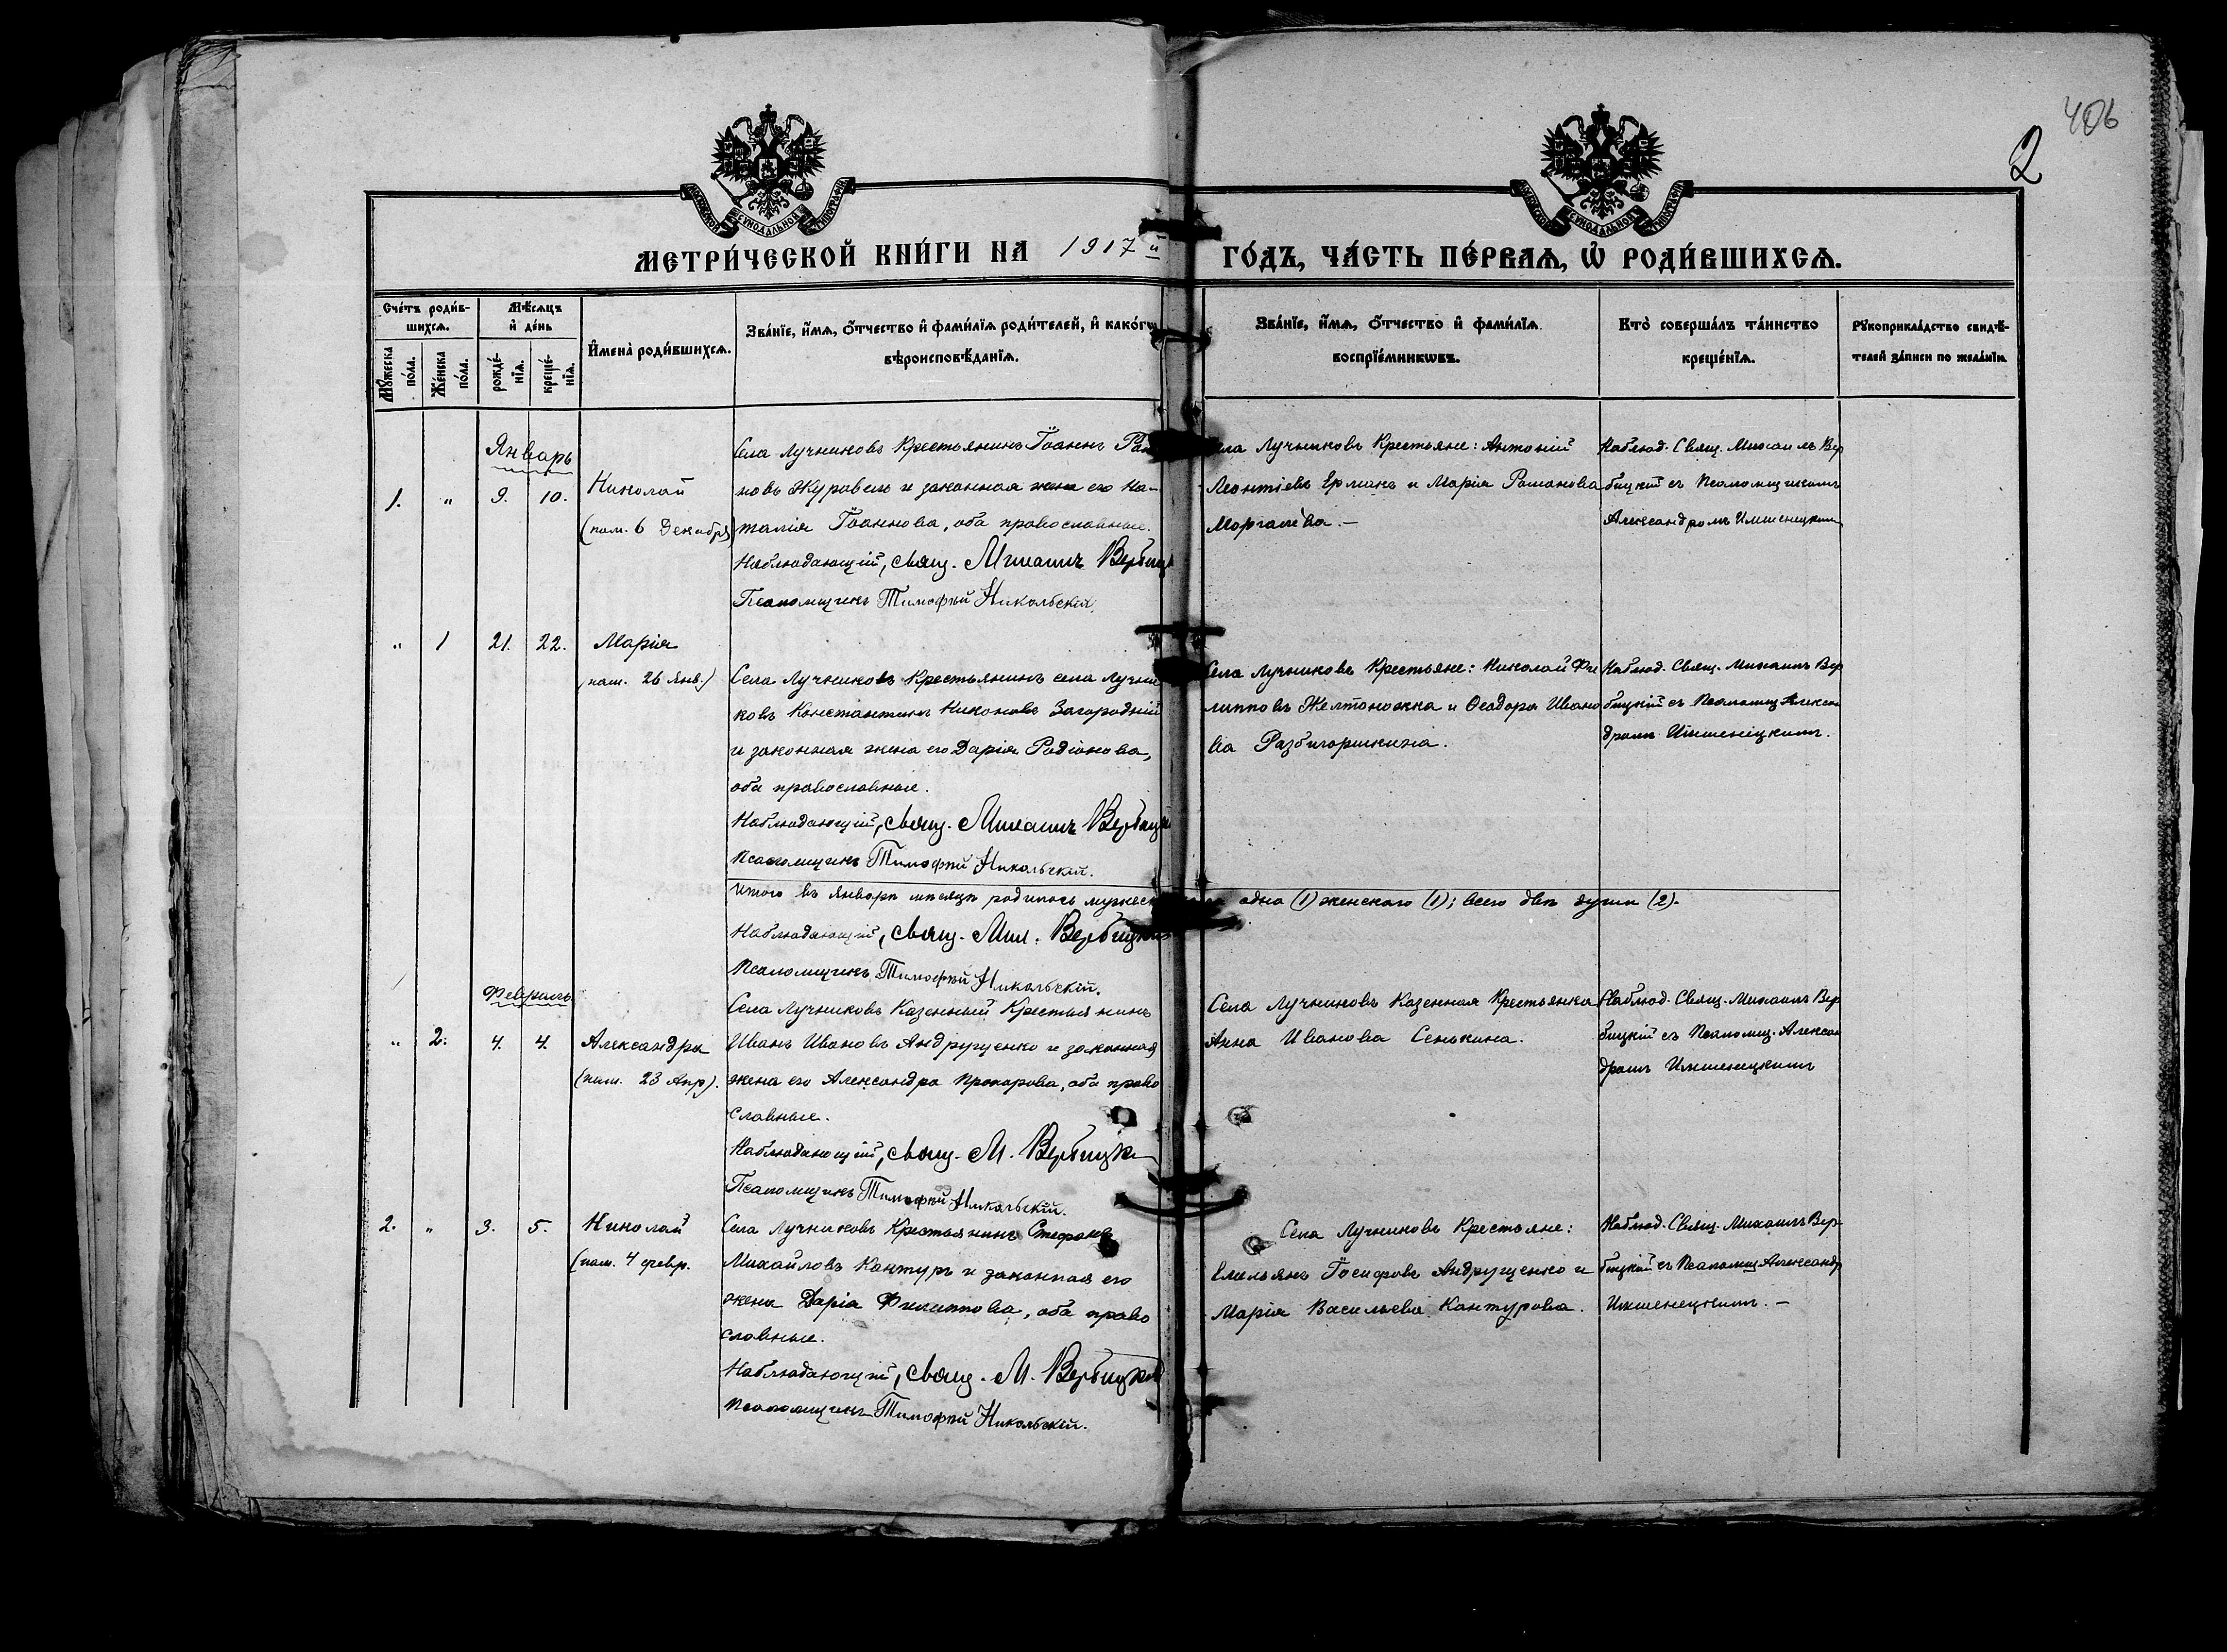 406
2
МОСКОВСКОЙ СѴНОДАЛЬНОЙ ТИПОГРАФІИ
МОСКОВСКОЙ СѴНОДАЛЬНОЙ ТИПОГРАФІИ
МЕТРИ́ЧЕСКОЙ КНИ́ГИ НА 1917 й ГО́ДЪ, ЧА́СТЬ ПЕ́РВАѦ, Ѡ҆ РОДИ́ВШИХСѦ.
Сче́тъ роди́в-
шихсѧ.
Мѣ́сѧцъ
и҆ де́нь
Мꙋ́жеска по́ла.
Же́нска по́ла.
рожде́-
нїѧ.
креще́-
нїѧ.
И҆мена̀ роди́вшихсѧ.
Зва́нїе, и҆́мѧ, ѻ҆́тчество и҆ фами́лїѧ роди́телей, и҆ како́гѡ
вѣроисповѣ́данїѧ.
Зва́нїе, и҆́мѧ, ѻ҆́тчество и҆ фами́лїѧ
воспрїе́мникѡвъ.
Кто̀ соверша́лъ та́инство
креще́нїѧ.
Рꙋкоприкла́дство свидѣ́-
телей за́писи по жела́нїю.
Январь
1. " 9. 10. Николай
(пам. 6 Декабря)
Села Лучниковъ Крестьянинъ Іоаннъ Ро
новъ Журавель и законная жена его На-
талія Іоаннова, оба православные.
Наблюдающій, свящ. Михаилъ Вербицк
Псаломщикъ Тимофѣй Никольскій.
Села Лучниковъ Крестьяне: Антоній
Леонтіевъ Ермакъ и Марія Романова
Моргалёва.—
Наблюд. Свящ. Михаилъ Вер
бицкій съ Псаломщикомъ
Александромъ Имшенецкимъ
" 1 21. 22. Марія
(пам. 26 Янв.)
Села Лучниковъ Крестьянинъ села Лучни
ковъ Константинъ Никоновъ Загородній
и законная жена его Дарія Родіонова,
оба православные.
Наблюдающій, свящ. Михаилъ Вербицк
Псаломщикъ Тимофѣй Никольскій.
Села Лучниковъ Крестьяне: Николай Фи
липповъ Желтоножка и Ѳеодора Ивано
ва Разбигоршкина.
Наблюд. Свящ. Михаилъ Вер
бицкій съ Псаломщ. Алексан
дромъ Имшенецкимъ.
Итого въ Январѣ мѣсяцѣ родилось мужеск одна (1) женскаго (1); всего двѣ души (2).
Наблюдающій, свящ. Мих. Вербицкій
Псаломщикъ Тимофѣй Никольскій.
Февраль
" 2. 4. 4. Александра
(пам. 23 Апр).
Села Лучниковъ Казенный Крестьянинъ
Иванъ Ивановъ Андрущенко и законная
жена его Александра Прохорова, оба право
славные.
Наблюдающій, свящ. М. Вербицкій
Псаломщикъ Тимофѣй Никольскій.
Села Лучниковъ Казенная Крестьянка
Анна Иванова Сенькина.
Наблюд. Свящ. Михаилъ Вер
бицкій съ Псаломщ. Алексан
дромъ Имшенецкимъ
2. " 3. 5. Николай
(пам. 4 февр.
Села Лучниковъ Крестьянинъ Стефанъ
Михайловъ Кантуръ и законная его
жена Дарія Филиппова, оба право
славные.
Наблюдающій, свящ. М. Вербицкій
Псаломщикъ Тимофѣй Никольскій.
Села Лучниковъ Крестьяне:
Емельянъ Іосифовъ Андрущенко и
Марія Васильева Кантурова.
Наблюд. Свящ. Михаилъ Вер-
бицкій съ Псаломщ Александр
Имшенецкимъ.—